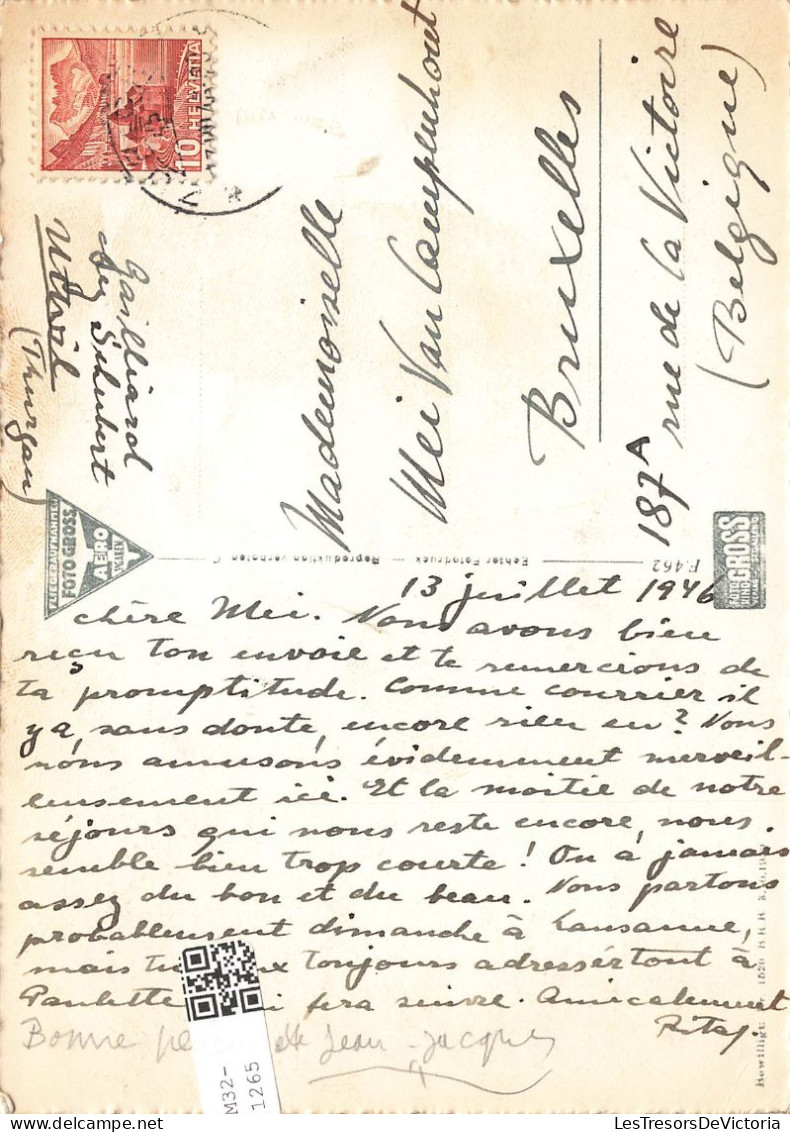 10 HELVETIA
Gailliard
bey Schubert
Uttwil
(Thurgau)
Mademoiselle
Mei Van Campenhout
Bruxelles
187A rue de la Victoire
(Belgique)
FLIEGERAUFNAHMEN
FOTO GROSS
AERO
ST. GALLEN
Reproduktion verboten
Echter Fotodruck
F.462
GROSS
13 juillet 1946
chère Mei. Nous avons bien
reçu ton envoie et te remercions de
ta promptitude. Comme courrier il
y a, sans doute, encore rien eu? Nous
nous amusons évidemment merveil-
leusement ici. Et la moitié de notre
séjours qui nous reste encore, nous
semble bien trop courte! On a jamais
assez du bon et du beau. Nous partons
probablement dimanche à Lausanne,
mais tu toujours adresser tout à
Paulette fera suivre. Amicalement
Ritaj.
Bonne de Jean-Jacques
Bewilligt
M32-
1265
LesTresorsDeVictoria